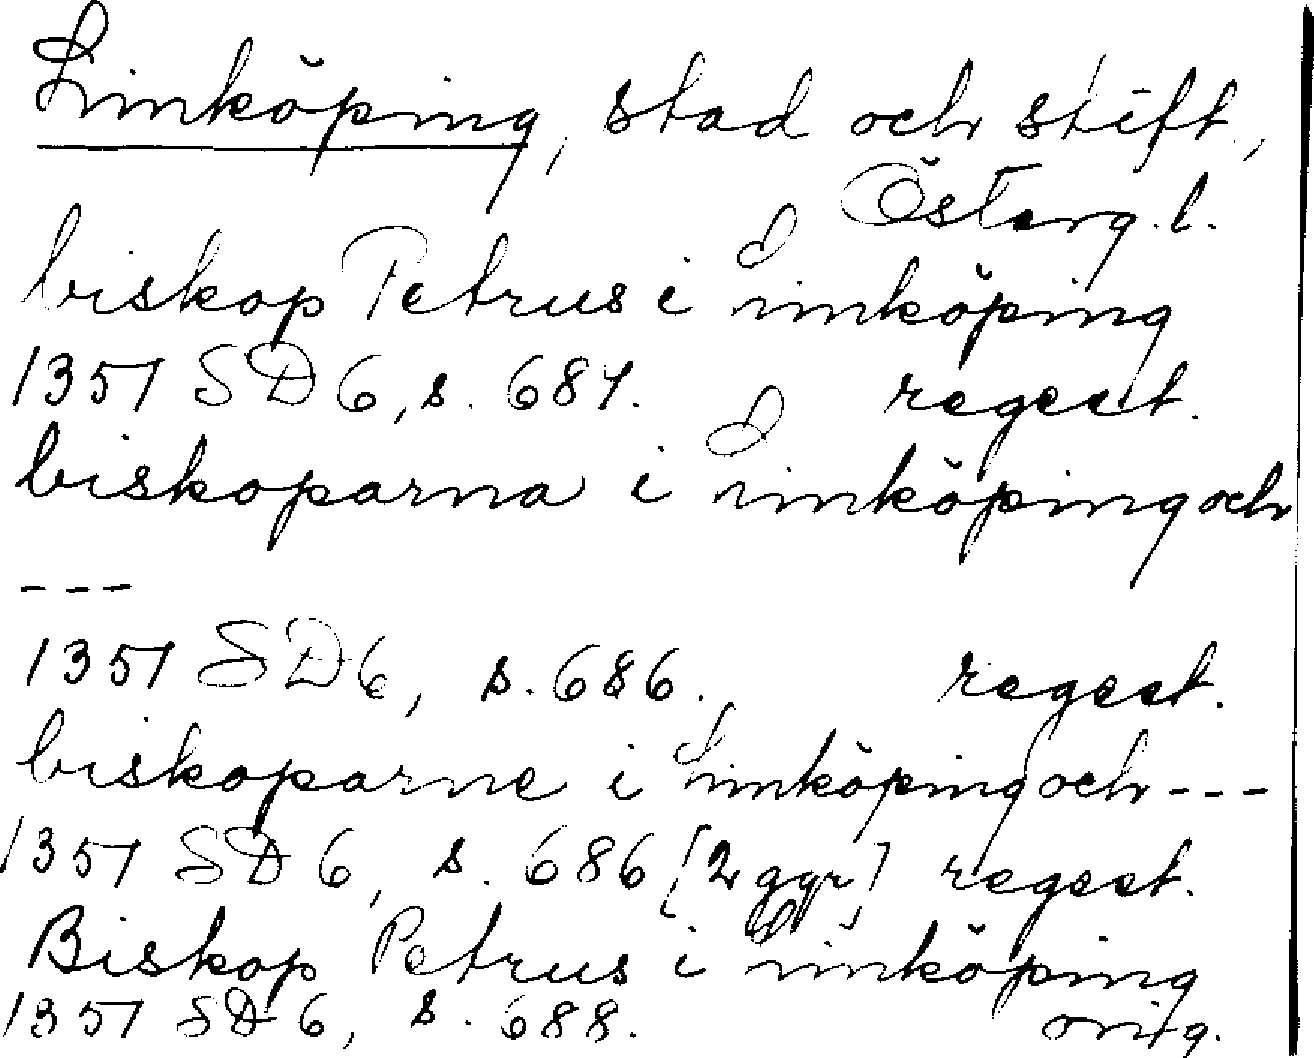 Linköping, stad och stift,
Österg. l.
biskop Petrus i Linköping
1351 SD 6, s. 684. regest.
biskoparna i Linköping och
---
1351 SD 6, s. 686. regest.
biskoparne i Linköping och ---
1351 SD 6, s. 686 [2 ggr] regest.
Biskop Petrus i Linköping
1351 SD 6, s. 688. orig.